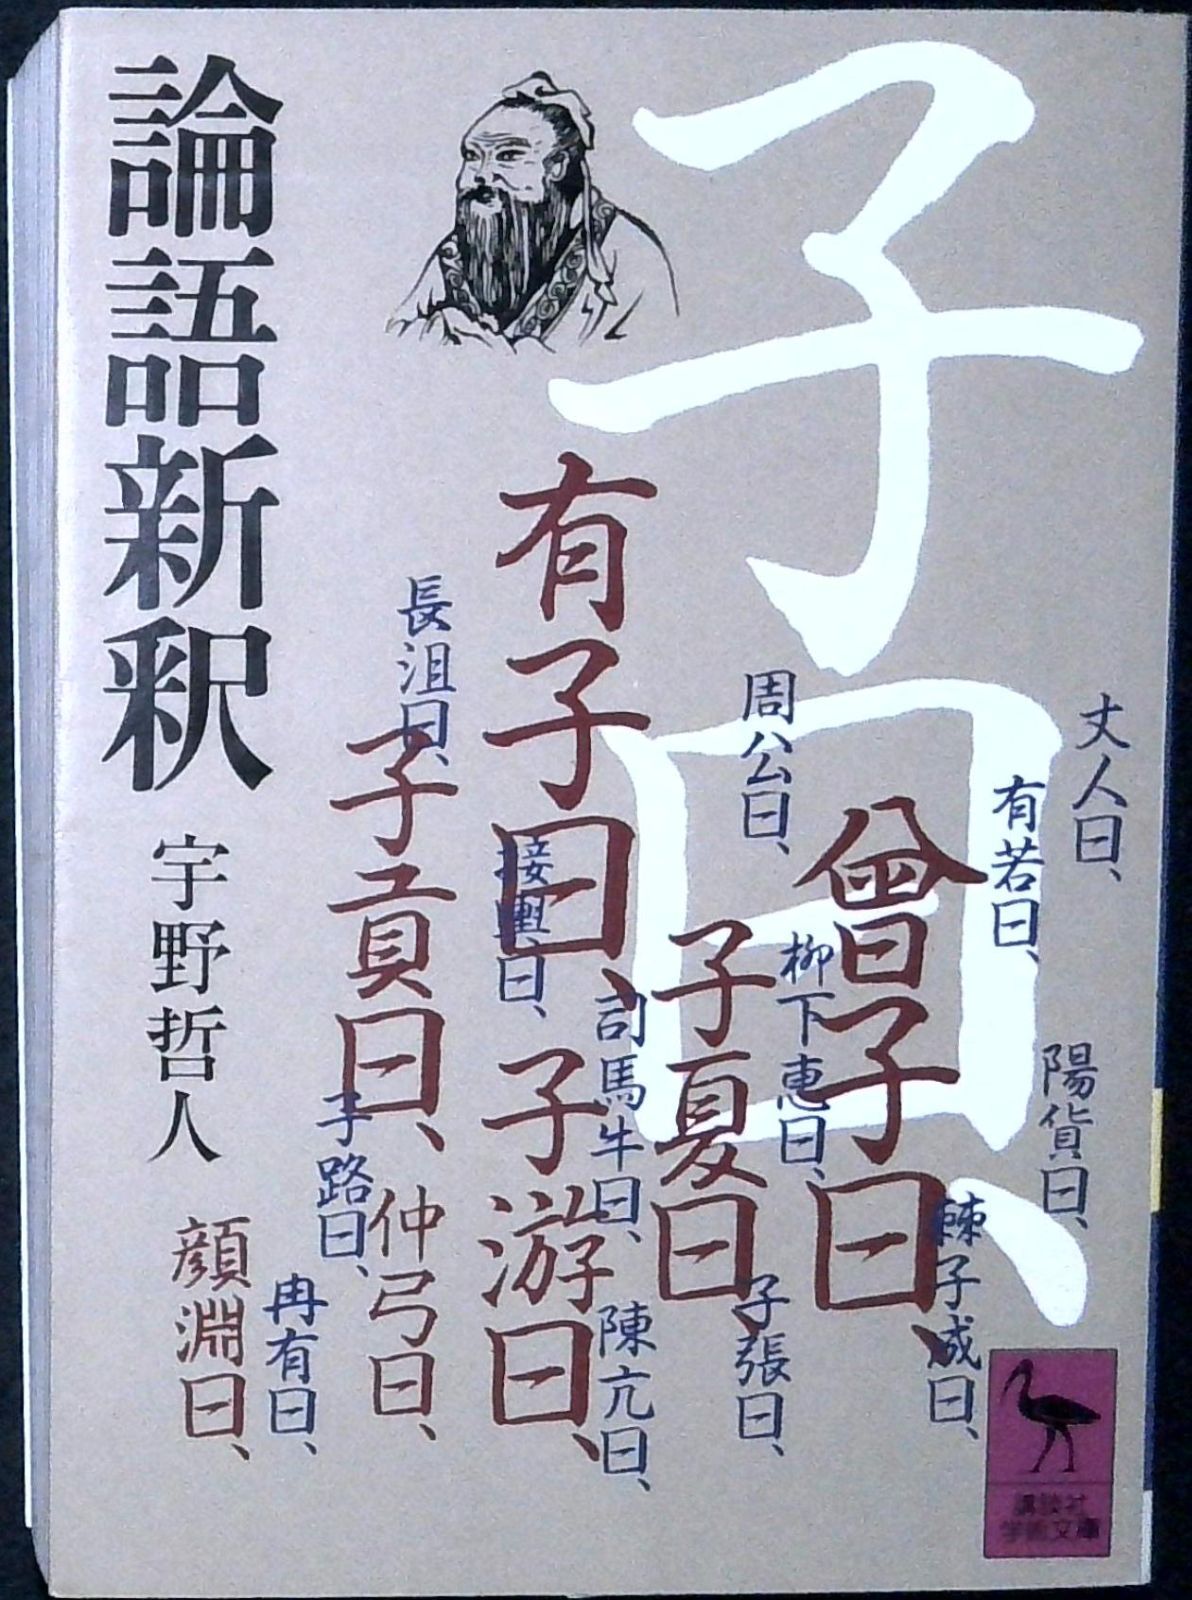 子曰、
丈人曰、
有若曰、
陽貨曰、
曾子曰、
棘子成曰、
周公曰、
柳下恵曰、
子夏曰、
子張曰、
有子曰、
司馬牛曰、
接輿曰、
子游曰、
陳亢曰、
長沮曰、
子貢曰、
仲弓曰、
子路曰、
冉有曰、
顔淵曰、
論語新釈
宇野哲人
講談社
学術文庫